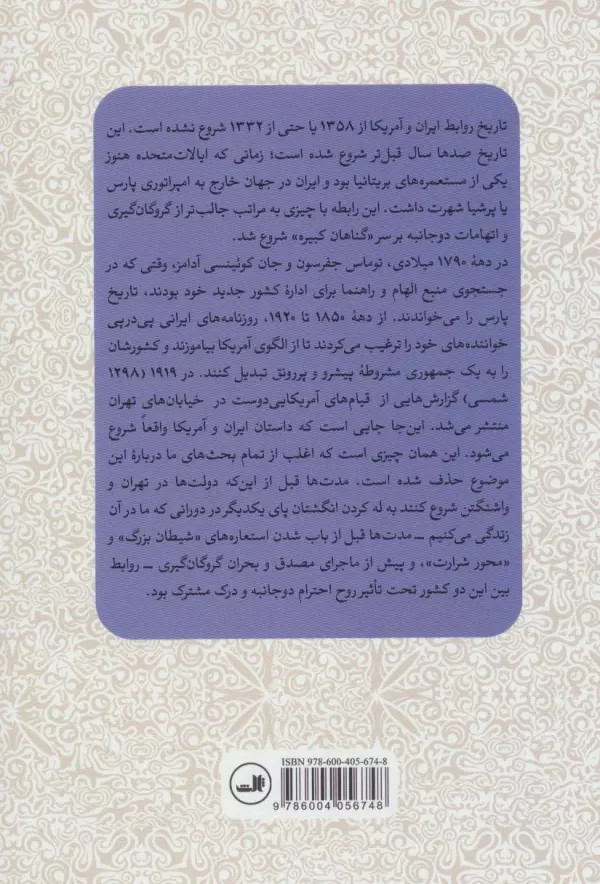 تاریخ روابط ایران و آمریکا از ۱۳۵۸ یا حتی از ۱۳۳۲ شروع نشده است. این
تاریخ صدها سال قبل‌تر شروع شده است؛ زمانی که ایالات‌متحده هنوز
یکی از مستعمره‌های بریتانیا بود و ایران در جهان خارج به امپراتوری پارس
یا پرشیا شهرت داشت. این رابطه با چیزی به مراتب جالب‌تر از گروگان‌گیری
و اتهامات دوجانبه بر سر «گناهان کبیره» شروع شد.
در دههٔ ۱۷۹۰ میلادی، توماس جفرسون و جان کوئینسی آدامز، وقتی که در
جستجوی منبع الهام و راهنما برای ادارهٔ کشور جدید خود بودند، تاریخ
پارس را می‌خواندند. از دههٔ ۱۸۵۰ تا ۱۹۲۰، روزنامه‌های ایرانی پی‌درپی
خواننده‌های خود را ترغیب می‌کردند تا از الگوی آمریکا بیاموزند و کشورشان
را به یک جمهوری مشروطهٔ پیشرو و پررونق تبدیل کنند. در ۱۹۱۹ (۱۲۹۸
شمسی) گزارش‌هایی از قیام‌های آمریکایی‌دوست در خیابان‌های تهران
منتشر می‌شد. این‌جا جایی است که داستان ایران و آمریکا واقعاً شروع
می‌شود. این همان چیزی است که اغلب از تمام بحث‌های ما دربارهٔ این
موضوع حذف شده است. مدت‌ها قبل از این‌که دولت‌ها در تهران و
واشنگتن شروع کنند به له کردن انگشتان پای یکدیگر در دورانی که ما در آن
زندگی می‌کنیم ــ مدت‌ها قبل از باب شدن استعاره‌های «شیطان بزرگ» و
«محور شرارت»، و پیش از ماجرای مصدق و بحران گروگان‌گیری ــ روابط
بین این دو کشور تحت تأثیر روح احترام دوجانبه و درک مشترک بود.
ISBN 978-600-405-674-8
9 786004 056748
ثالث